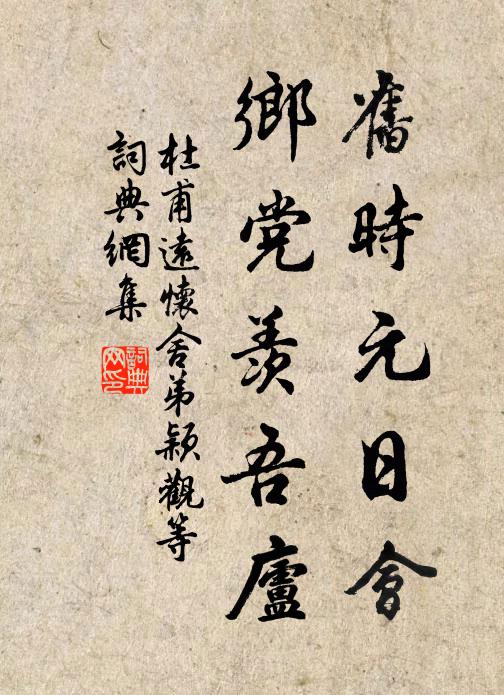 舊時元日會
鄉党羨吾廬
杜甫遠懷舍弟穎觀等
詞典網集
詞典網印